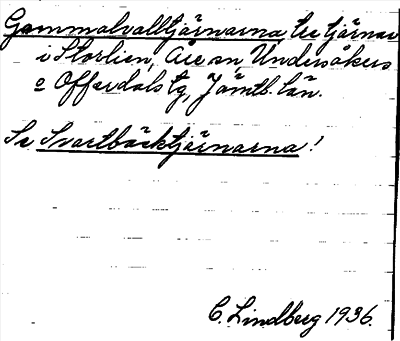 Gammalvalltjärnarna, tre tjärnar
i Storlien, Åre sn, Undersåkers
o Offerdals tg, Jämtl. län.
Se Svartbäcktjärnarna!
C. Lindberg 1936.